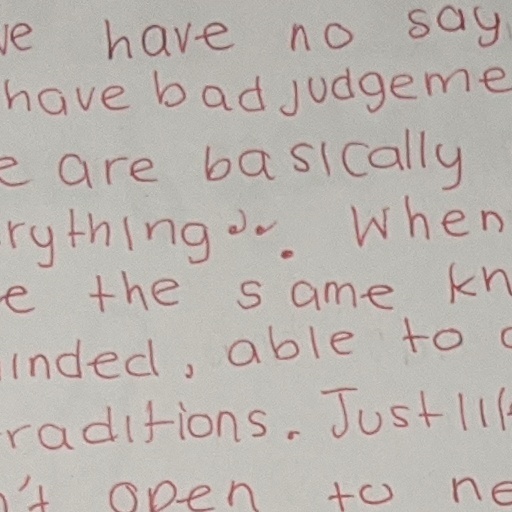 ve have no say
have bad judgeme
e are basically
rything. When
e the same kn
inded, able to
raditions. Just lik
n't open to ne